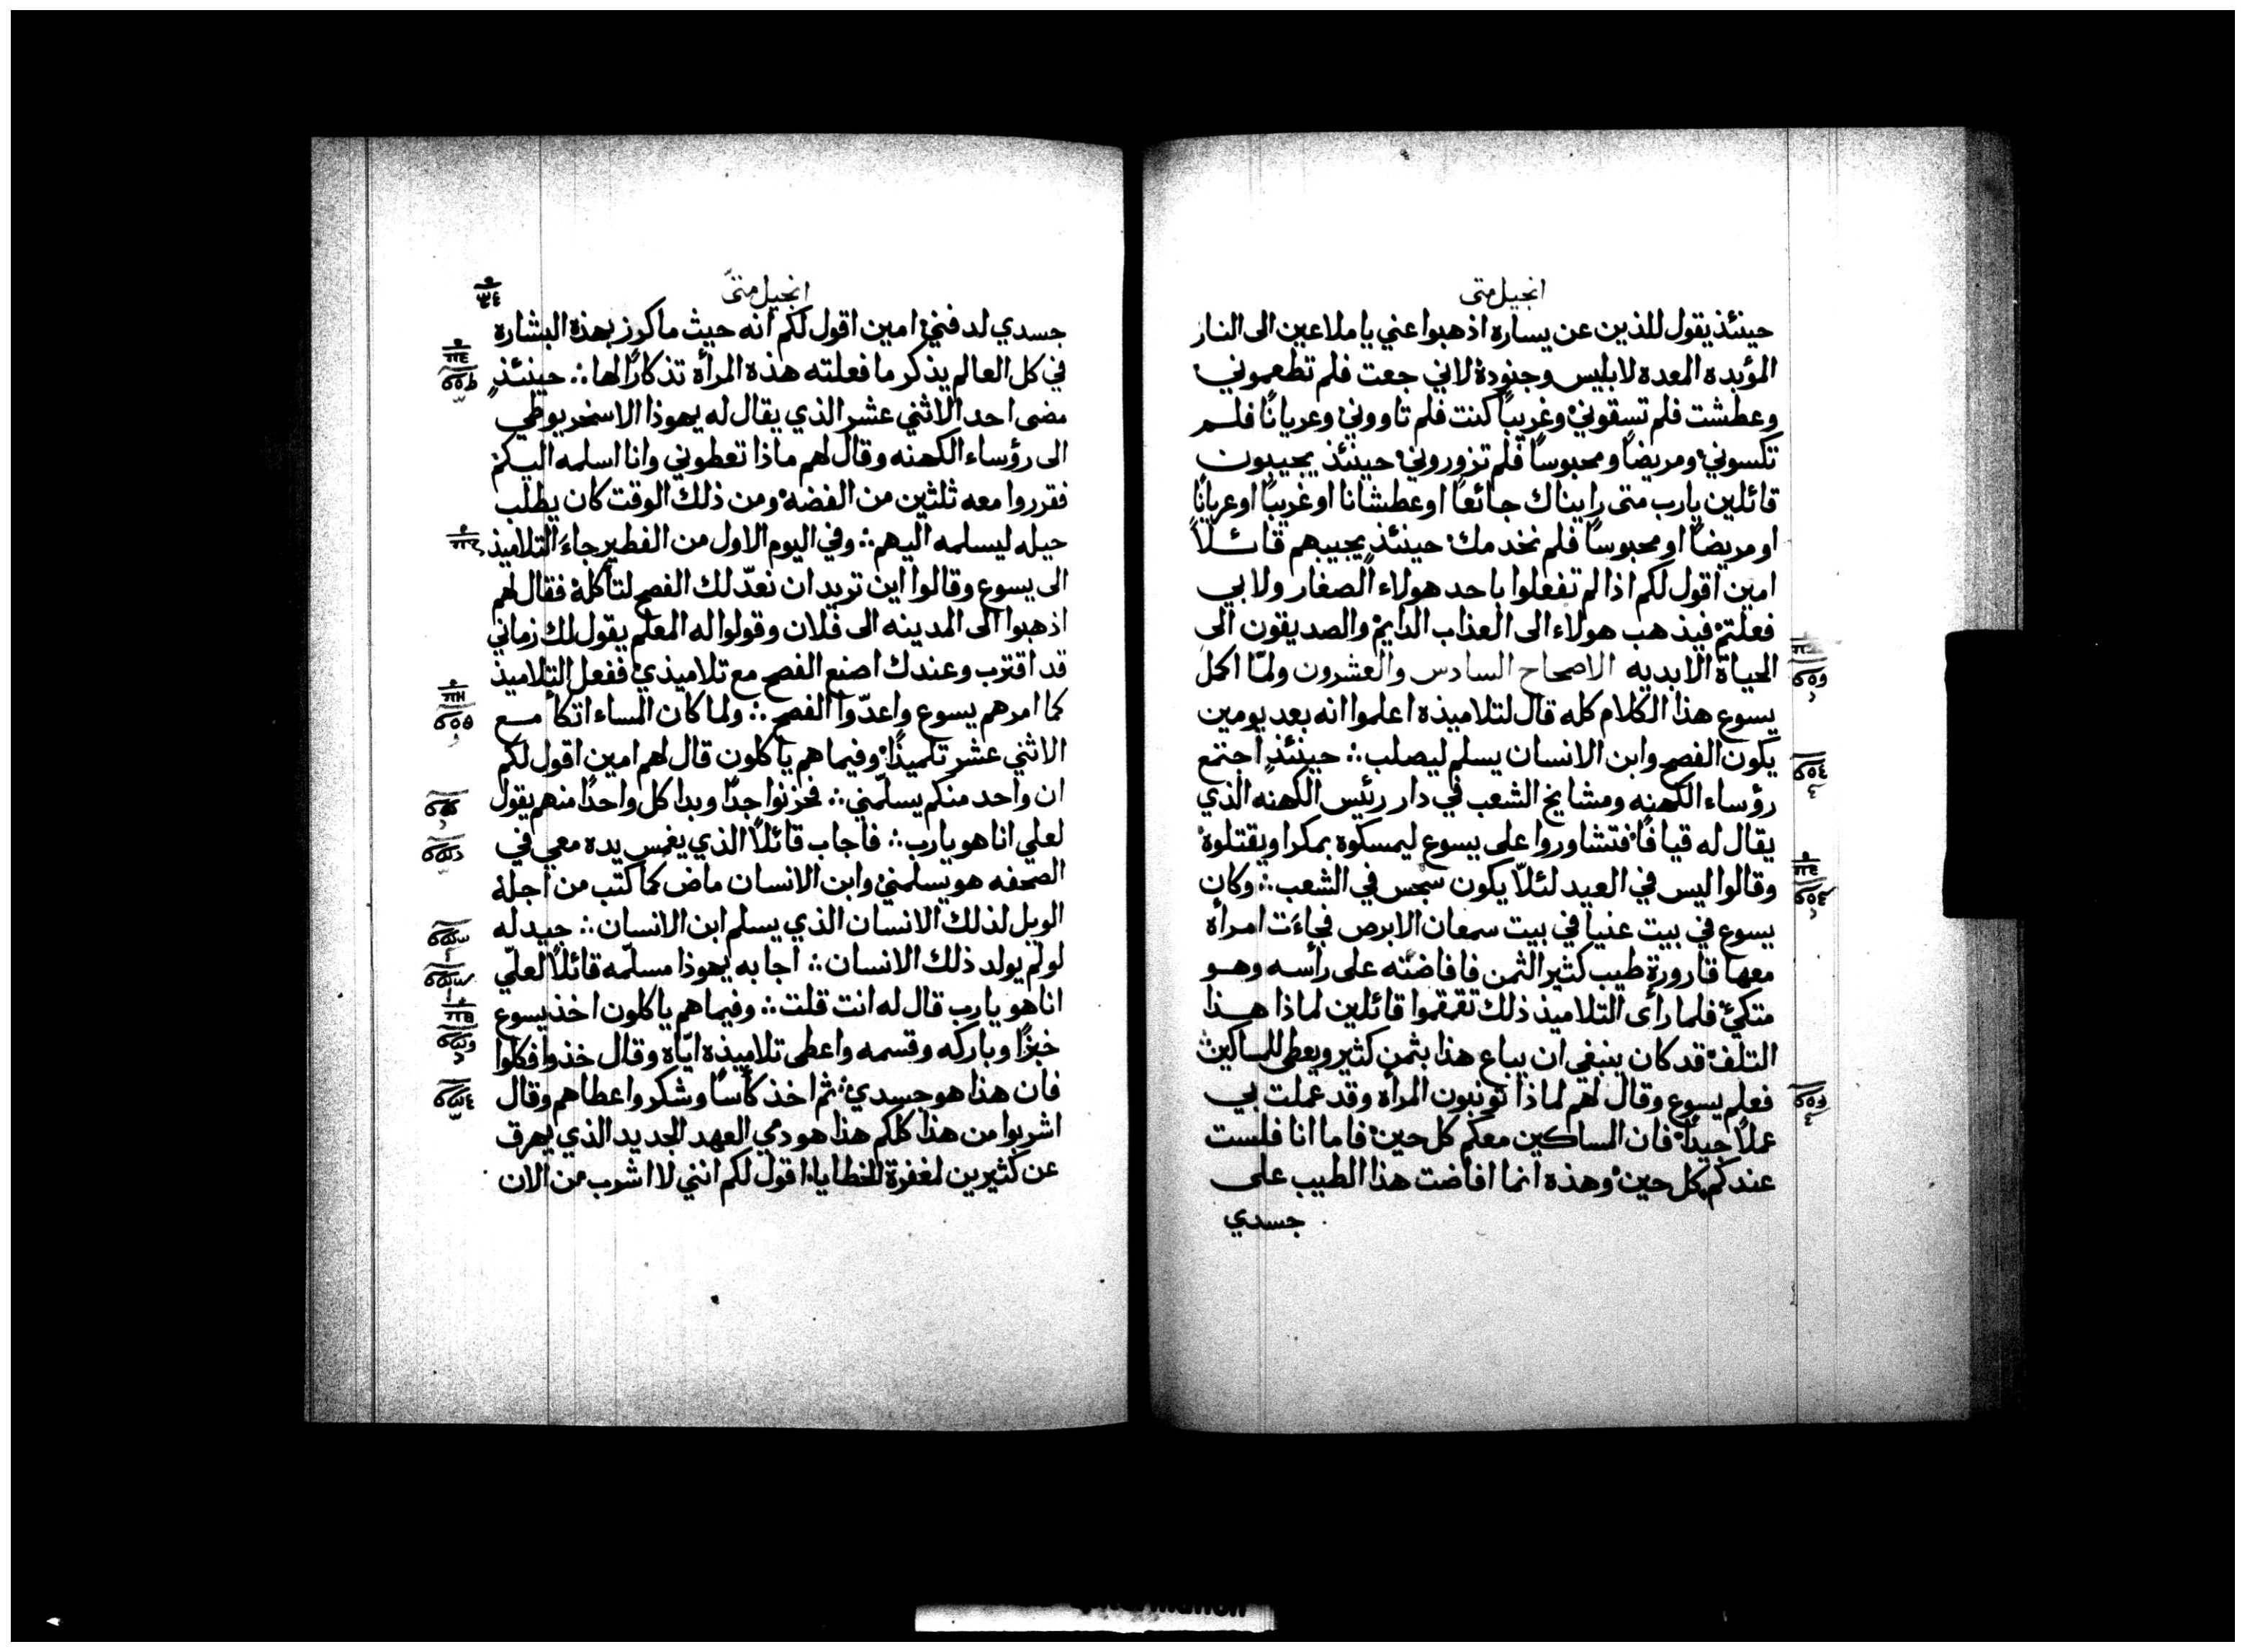 انجيل متى
حينئذ يقول للذين عن يساره اذهبوا عني يا ملاعين الى النار
المؤبده المعده لابليس وجنوده لاني جعت فلم تطعموني
وعطشت فلم تسقوني وغريبًا كنت فلم تاووني وعريانًا فلم
تكسوني ومريضًا ومحبوسًا فلم تزوروني حينئذ يجيبون
قائلين يارب متى رايناك جائعًا او عطشانا او غريبًا او عريانًا
او مريضًا او محبوسًا فلم نخدمك حينئذ يجيبهم قائلاً
امين اقول لكم اذا لم تفعلوا باحد هولاء الصغار ولا بي
فعلتم فيذهب هولاء الى العذاب الدايم والصديقون الى
الحياة الابديه الاصحاح السادس والعشرون ولمّا اكمل
يسوع هذا الكلام كله قال لتلاميذه اعلموا انه بعد يومين
يكون الفصح وابن الانسان يسلم ليصلب ∴ حينئذٍ اجتمع
رؤساء الكهنه ومشايخ الشعب في دار رئيس الكهنه الذي
يقال له قيافا فتشاوروا على يسوع ليمسكوه بمكرا ويقتلوه
وقالوا ليس في العيد لئلاّ يكون سجس في الشعب ∴ وكان
يسوع في بيت عنيا في بيت سمعان الابرص فجاءَت امرأه
معها قارورة طيب كثير الثمن فافاضته على رأسه وهو
متكئ فلما رأى التلاميذ ذلك تقمقموا قائلين لماذا هذا
التلف قد كان ينبغي ان يباع هذا بثمن كثير ويعطى للمساكين
فعلم يسوع وقال لهم لماذا تونبون المرأة وقد عملت بي
عملاً جيدًا فان المساكين معكم كل حين فاما انا فلست
عندكم كل حين وهذه انما افاضت هذا الطيب على
جسدي
انجيل متىّ
جسدي لدفني امين اقول لكم انه حيث ما كرز بهذه البشاره
في كل العالم يذكر ما فعلته هذه المرأة تذكارًا لها ∴ حينئذٍ
مضى احد الاثني عشر الذي يقال له يهوذا الاسخريوطي
الى رؤساء الكهنه وقال لهم ماذا تعطوني وانا اسلمه اليكم
فقرروا معه ثلثين من الفضه ومن ذلك الوقت كان يطلب
حيله ليسلمه اليهم ∴ وفي اليوم الاول من الفطير جاءَ التلاميذ
الى يسوع وقالوا اين تريد ان نعدّ لك الفصح لتأكله فقال لهم
اذهبوا الى المدينه الى فلان وقولوا له المعلم يقول لك زماني
قد اقترب وعندك اصنع الفصح مع تلاميذي ففعل التلاميذ
كما امرهم يسوع واعدّوا الفصح ∴ ولما كان المساء اتكأ مع
الاثني عشر تلميذًا وفيما هم ياكلون قال لهم امين اقول لكم
ان واحد منكم يسلّمني ∴ فحزنوا جدًا وبدا كل واحدًا منهم يقول
لعلي انا هو يارب ∴ فاجاب قائلاً الذي يغمس يده معي في
الصحفه هو يسلمني وابن الانسان ماض كما كتب من اجله
الويل لذلك الانسان الذي يسلم ابن الانسان ∴ جيد له
لو لم يولد ذلك الانسان ∴ اجابه يهوذا مسلّمه قائلاً لعلّي
انا هو يارب قال له انت قلت ∴ وفيما هم ياكلون اخذ يسوع
خبزًا وباركه وقسمه واعطى تلاميذه ايّاه وقال خذوا فكلوا
فان هذا هو جسدي ثم اخذ كأسًا وشكر واعطاهم وقال
اشربوا من هذا كلكم هذا هو دمي العهد الجديد الذي يهرق
عن كثيرين لمغفرة الخطايا اقول لكم انني لا اشرب من الان